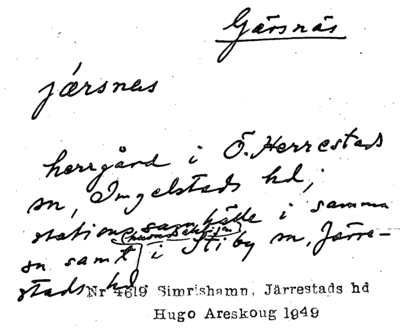 Gärsnäs
järsnas
herrgård i Ö. Herrestads
sn, Ingelstads hd;
stationssamhälle i samma
sn samt i Stiby sn. Järre-
stads hd
Nr 4819 Simrishamn, Järrestads hd
Hugo Areskoug 1949